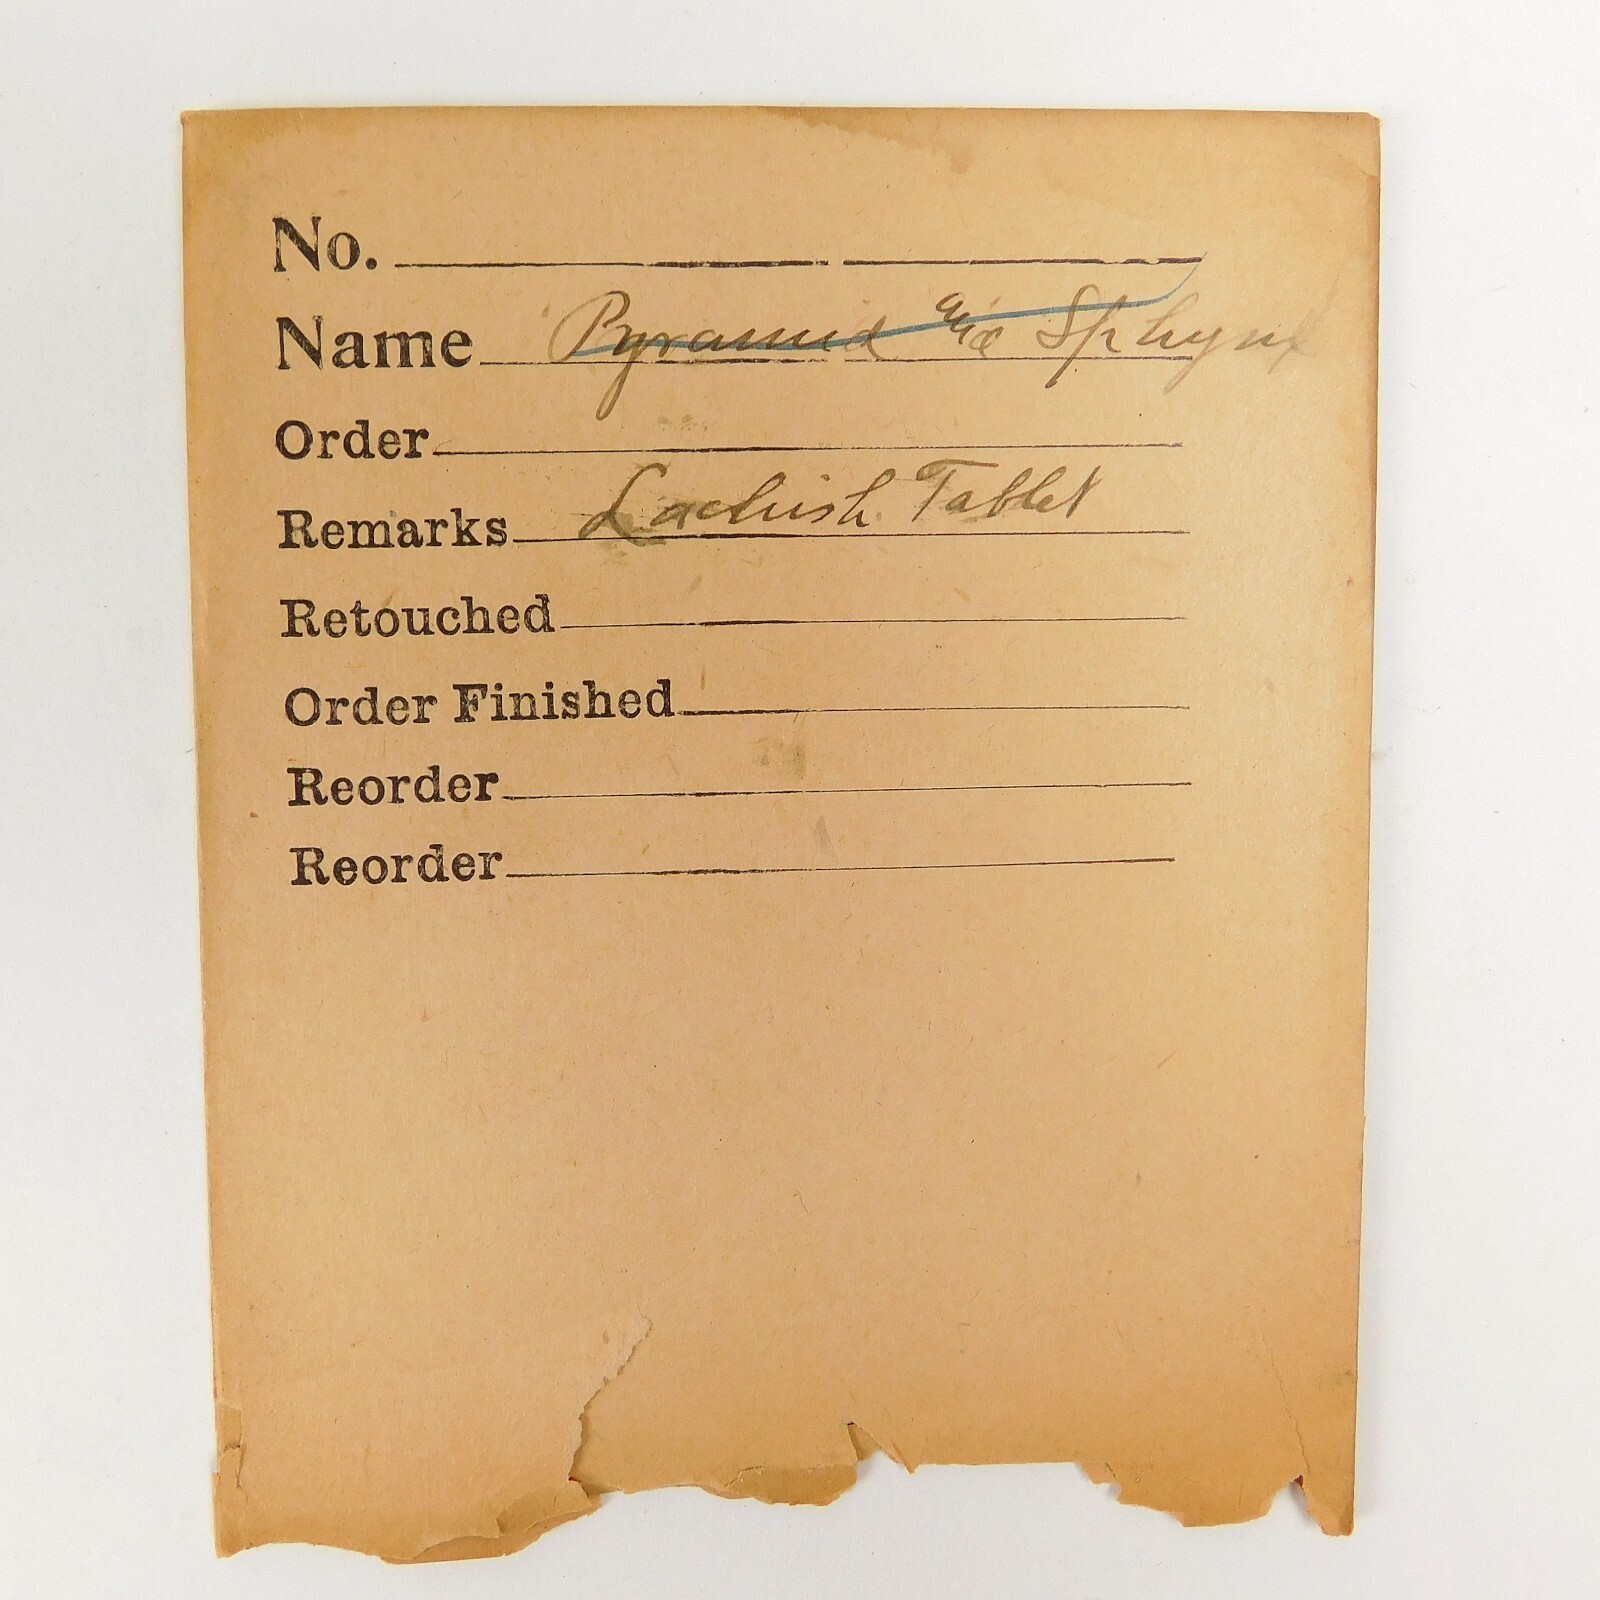 No.
Name Pyramid and Sphynx
Order
Remarks Lachish Tablet
Retouched
Order Finished
Reorder
Reorder